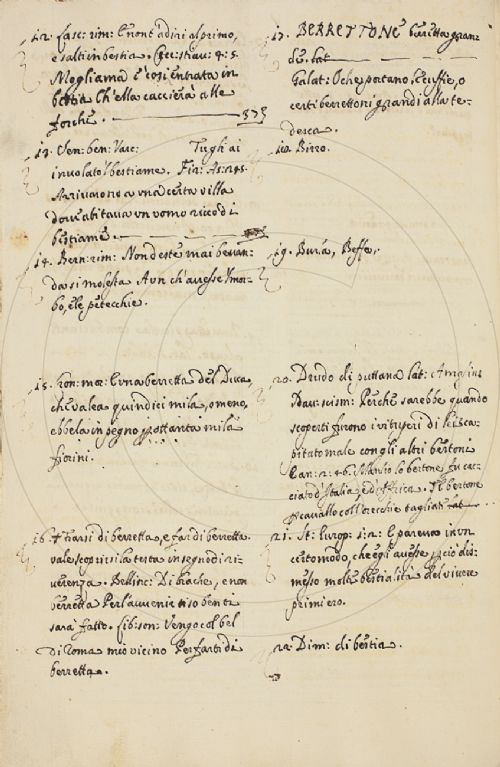 12. fasc: rim: E non t'adiri al primo,
e salti in bestia. Cecc: stiav: 4: 5.
Mogliama è così entrata in
bestia Ch'ella caccierà alle
forche.
13. Sen: ben: Varc: Tu gli ai
involato 'l bestiame. Fir: As: 245.
Arrivarono a una certa villa
dove abitava un uomo ricco di
bestiame.
14. Bern: rim: Non deste mai bevan-
da si molesta A un ch'avesse 'l mor-
bo, e le petecchie.
15. E una berretta del Duca,
che valea quindici mila, o meno,
ebbela in pegno per ottanta mila
fiorini.
16. di berretta, e far di berretta
vale scoprirsi la testa in segno di ri-
verenza. Bellinc: Di brache, e non
berretta Per l'avvenir riso ben ti
sarà fatto. lib: son: Vengo col bel
di Roma mio vicino Per farti di
berretta.
17. BERRETTONE berretta gran-
de. lat
Galat: O che portano, le cuffie, o
certi berrettoni grandi alla te-
desca.
18. Birro.
19. Bura, Beffe,
20. Drudo di puttana lat:
Dav: scism: Perché sarebbe quando
scoperti furono i vituperi di lei sca-
pitato male con gli altri bertoni
2. 46. Manlio lo bertone fu cac-
ciato d'Italia, e d'Affrica. Il bertone
cavallo coll'orecchie tagliate lat
21. St: Europ: 1: 2: E pareva in un
certo modo, che egli avesse, già dis-
messo molte bestialità del vivere
primiero.
22. Dim: di bestia.